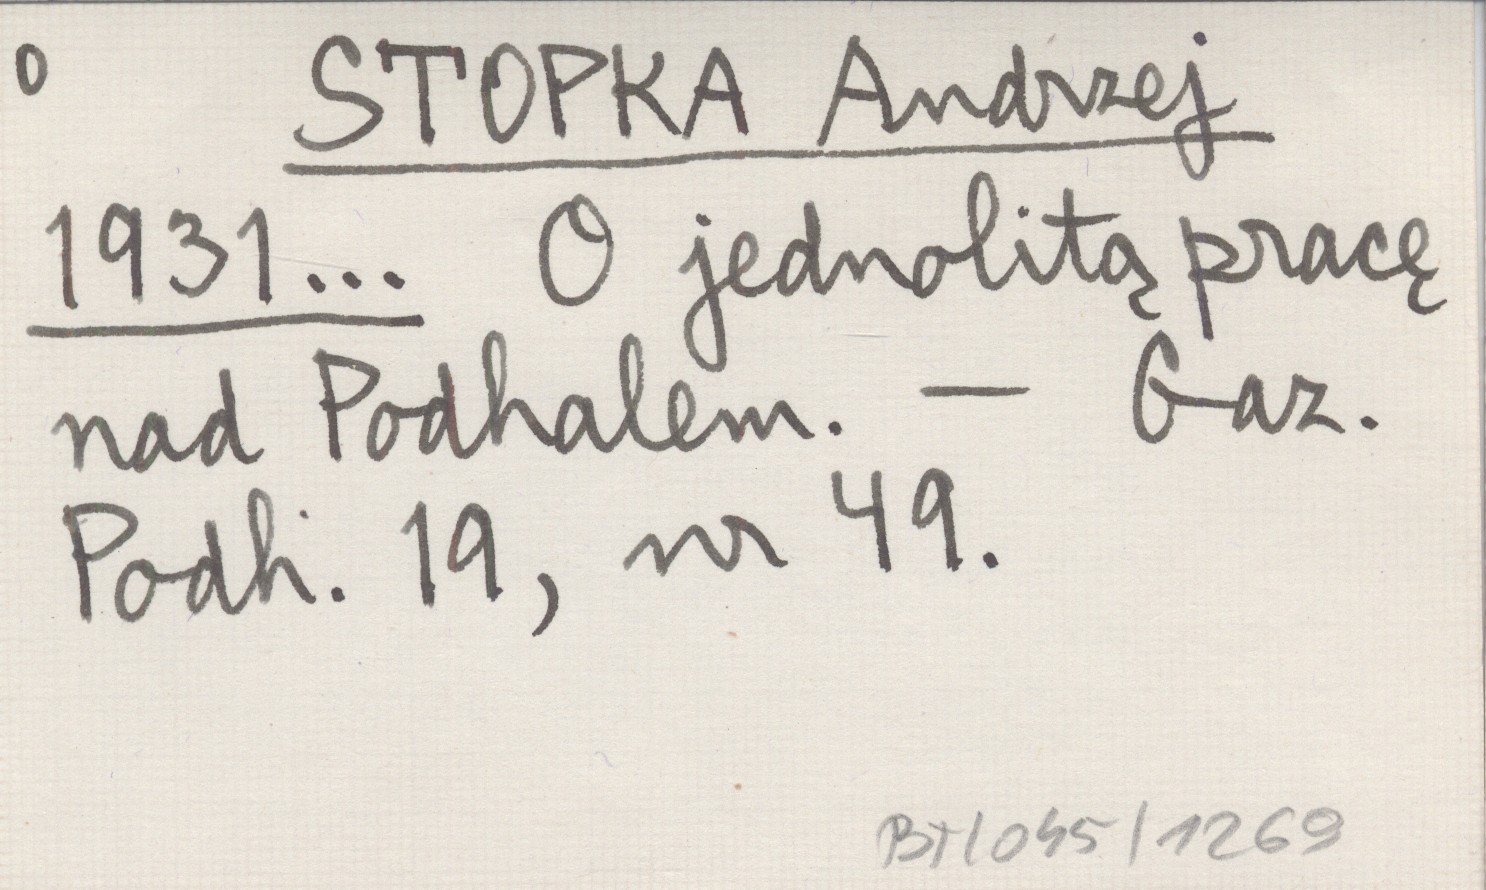 o STOPKA Andrzej
1931... O jednolitą pracę
nad Podhalem. — Gaz.
Podh. 19, nr 49.
BT/045/1269